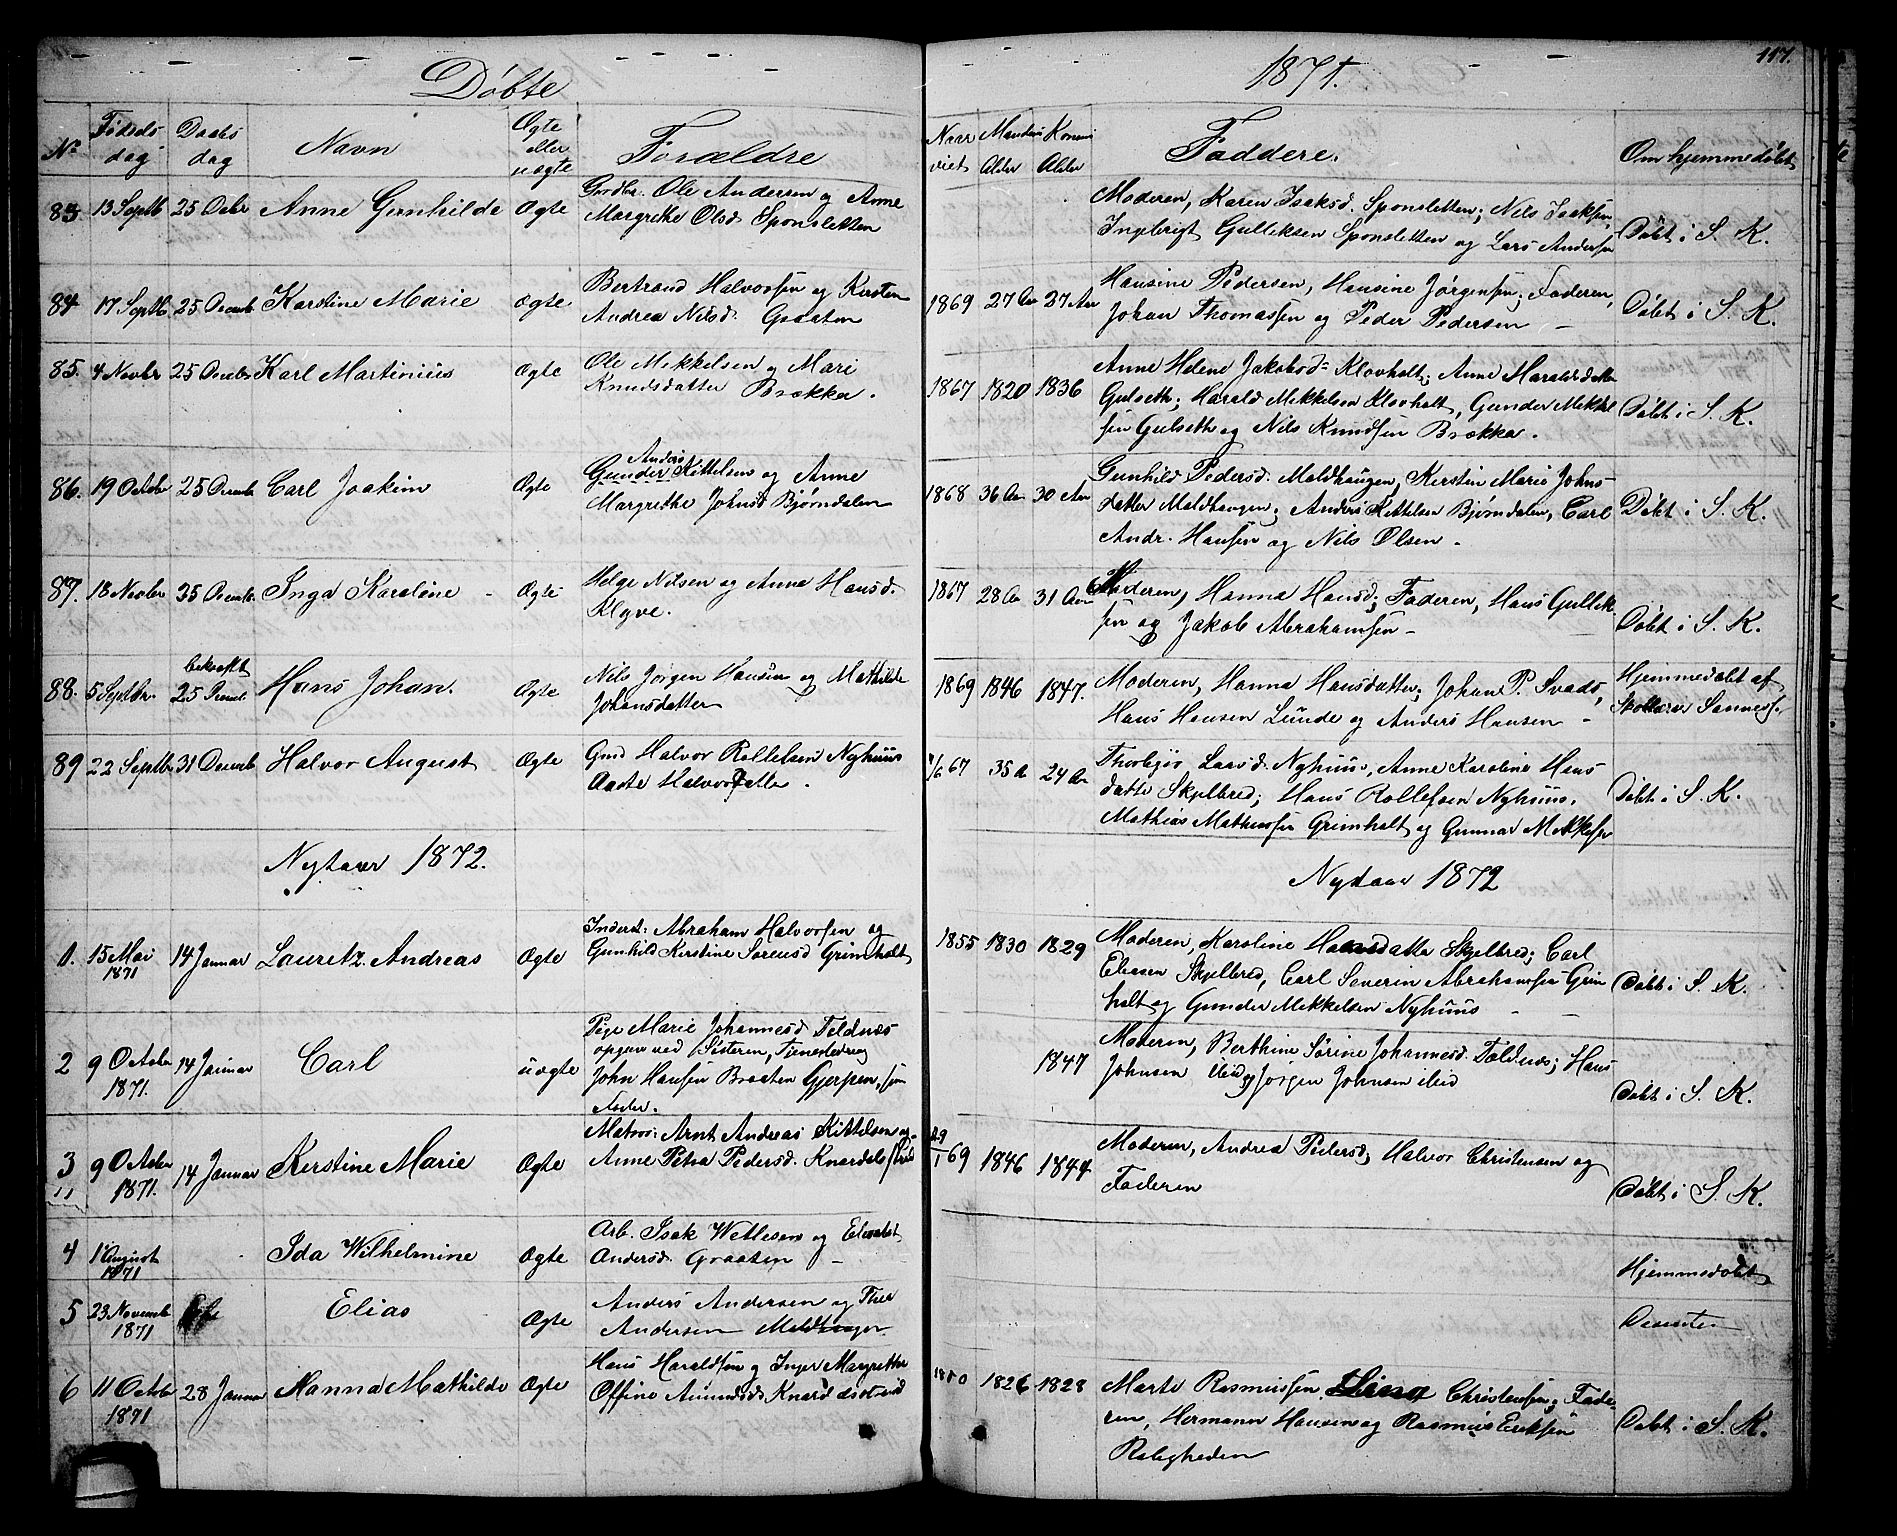 117.
Døbte
1871.
No Fødselsdag Daabsdag Navn Ægte eller uægte Forældre Naar viet Mandens Alder Konens Alder Faddere. Om hjemmedøbt
83. 13 Septb 25 Decbr Anne Gunhilde Ægte Grdbr. Ole Andersen og Anne
Margrethe Olsd. Sponsletten
Moderen, Karen Isaksd. Sponsletten; Nils Isaksen,
Ingebrigt Gulleksen Sponsletten og Lars Andersen
Døbt i S. K.
84. 17 Septb. 25 Decemb Karstine Marie ægte Bertrand Halvorsen og Kirsten
Andrea Nilsd. Graaten
1869 27 Aar 27 Aar Hansine Pedersen, Hansine Jørgensen; Faderen,
Johan Thomassen og Peder Pedersen –
Døbt i S. K.
85. 4 Novbr 25 Decbr Karl Martinius Ægte Ole Mekkelsen og Mari
Knudsdatter Brække.
1867 1820 1836 Anne Helene Jakobsd. Klovholt; Anne Haraldsdatter
Gulseth; Harald Mekkelsen Klovholt, Gunder Mekkel
sen Gulseth og Nils Knudsen Brække.
Døbt i S. K.
86. 19 Octobr 25 Decemb Carl Joakim Ægte Anders
Gunder Kittelsen og Anne
Margrethe Johnsd Bjørndalen
1868 36 Aar 30 Aar Gunhild Pedersd. Moldhaugen, Kirstin Marie Johns-
datter Moldhaugen; Anders Kittelsen Bjørndalen, Carl
Andr. Hansen og Nils Olsen –
Døbt i S. K.
87. 18 Novbr 25 Decemb. Inga Karoline – Ægte Helge Nilsen og Anne Hansd.
Klyve.
1867 28 Aar 31 Aar Moderen, Hanna Hansd; Faderen, Hans Gullek
sen og Jakob Abrahamsen –
Døbt i S. K.
88. 5 Septbr. bekræftet
25 Decemb. Hans Johan. Ægte Nils Jørgen Hansen og Mathilde
Johansdatter
1869 1846 1847. Moderen, Hanna Hansdatter; Johan P. Svads,
Hans Hansen Lunde og Anders Hansen –
Hjemmedøbt af
Skolelærer
89 22 Septb 31 Decemb Halvor August Ægte Gmd Halvor Rollefsen Nyhuus
Aaste Halvorsdatter.
/6 67 35 A 24 Aar Thorbjør Laavd. Nyhuus, Anne Karoline Hans
datter Skjelbred; Hans Rollefsen Nyhuus,
Mathias Mathiassen Grimholt og Gunnar Mekkelsen
Døbt i S. K.
Nytaar 1872.
Nytaar 1872
1. 15 Mai
1871 14 Januar Lauretz Andreas Ægte Inderst: Abraham Halvorsen og
Gunhild Kirstine Sørensd Grimholt
1855 1830 1829 Moderen, Karoline Hansdatter Skjelbred; Carl
Eliesen Skjelbred, Carl Severin Abrahamsen Grim
holt og Gunder Mekkelsen Nyhuus –
Døbt i S. K.
2 9 October
1871. 14 Januar Carl uægte Pige Marie Johannesd. Foldnæs
opgave ved Søsteren, Tjenestedreng
John Hansen Braaten Gjerpen, som
Fader.
1847 Moderen, Berthine Sørine Johannesd. Foldnæs; Hans
Johnsen ibid og Jørgen Johnsen ibid
Døbt i S. K.
3 9 October
1871. 14 Januar Kerstine Marie Ægte Matros: Arnt Andreas Kittelsen og
Anne Petra Pedersd. Knardalsstrand
29/1 69 1846 1844 Moderen, Andrea Pedersd; Halvor Christensen og
Faderen
Døbt i S. K.
4 1 August
1871 Ida Wilhelmine Ægte Arb. Isak Wetlesen og Elisabet
Andersd. Graaten –
Hjemmedøbt
5 23 Novemb
1871 Elias Ægte Anders Andersen og Ther
Andersen Moldhaugen
6 11 Octobr
1871 28 Januar Hanna Mathilde Ægte Hans Haraldsen og Inger Margrethe
Offine Amundsd. Knardalsstrand
1850 1826 1828 Marte Rasmussen Stina Christensen; Fade-
ren, Hermann Hansen og Rasmus Eriksen
Roligheden
Døbt i S. K.